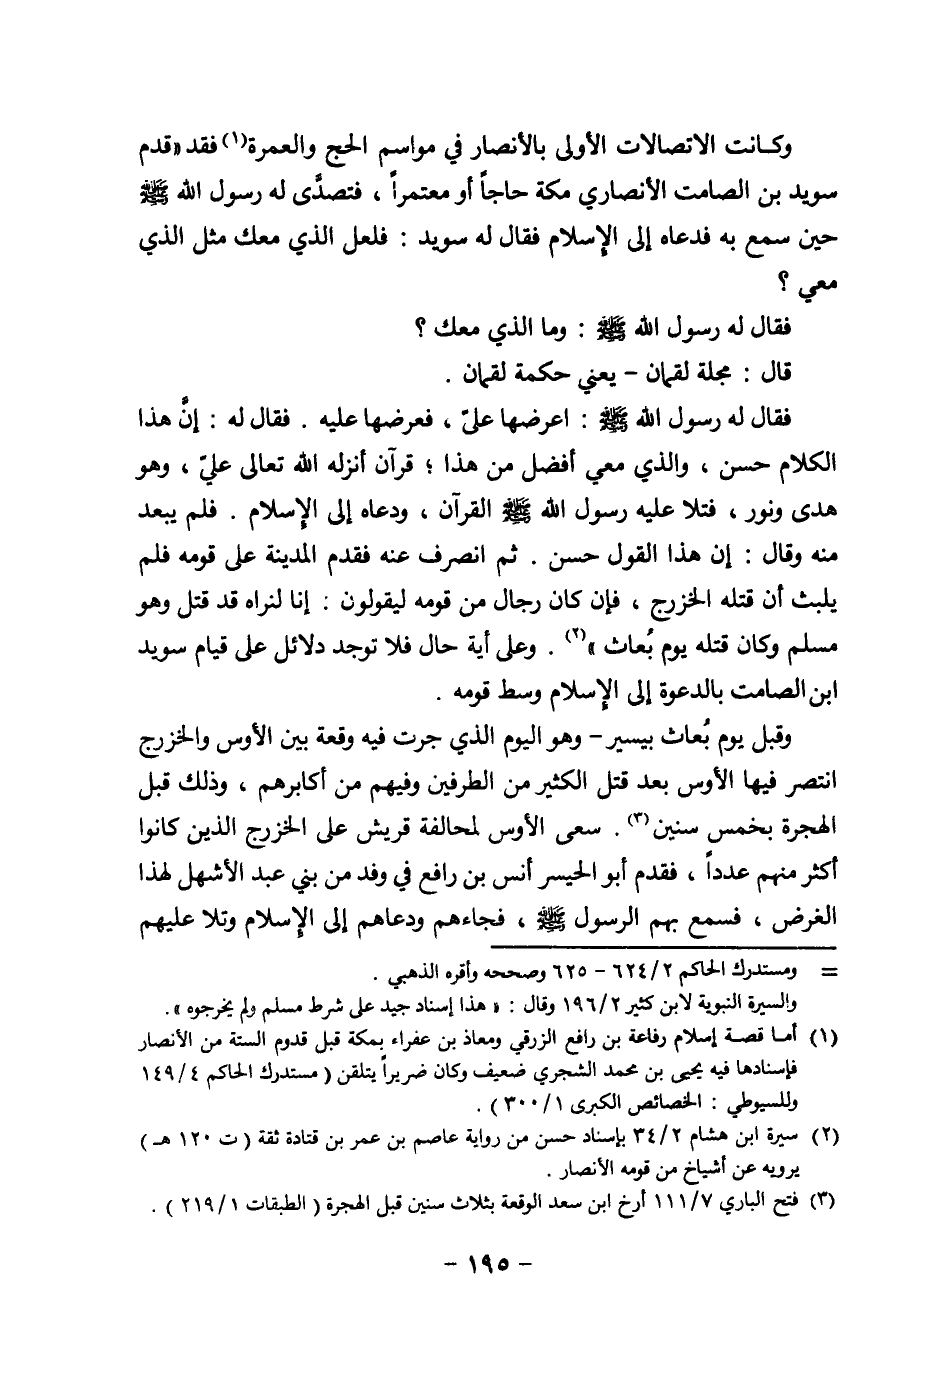 وكانت الاتصالات الأولى بالأنصار في مواسم الحج والعمرة(١) فقد «قدم
سويد بن الصامت الأنصاري مكة حاجاً أو معتمراً ، فتصدَّى له رسول الله ﷺ
حين سمع به فدعاه إلى الإسلام فقال له سويد : فلعل الذي معك مثل الذي
معي ؟
فقال له رسول الله ﷺ : وما الذي معك ؟
قال : مجلة لقمان – يعني حكمة لقمان .
فقال له رسول الله ﷺ : اعرضها عليّ ، فعرضها عليه . فقال له : إنَّ هذا
الكلام حسن ، والذي معي أفضل من هذا ؛ قرآن أنزله الله تعالى عليّ ، وهو
هدى ونور ، فتلا عليه رسول الله ﷺ القرآن ، ودعاه إلى الإسلام . فلم يبعد
منه وقال : إن هذا القول حسن . ثم انصرف عنه فقدم المدينة على قومه فلم
يلبث أن قتله الخزرج ، فإن كان رجال من قومه ليقولون : إنا لنراه قد قتل وهو
مسلم وكان قتله يوم بُعاث »(٢) . وعلى أية حال فلا توجد دلائل على قيام سويد
ابن الصامت بالدعوة إلى الإسلام وسط قومه .
وقبل يوم بُعاث بيسير – وهو اليوم الذي جرت فيه وقعة بين الأوس والخزرج
انتصر فيها الأوس بعد قتل الكثير من الطرفين وفيهم من أكابرهم ، وذلك قبل
الهجرة بخمس سنين(٣) . سعى الأوس لمحالفة قريش على الخزرج الذين كانوا
أكثر منهم عدداً ، فقدم أبو الحيسر أنس بن رافع في وفد من بني عبد الأشهل لهذا
الغرض ، فسمع بهم الرسول ﷺ ، فجاءهم ودعاهم إلى الإسلام وتلا عليهم
= ومستدرك الحاكم ٦٢٤/٢ – ٦٢٥ وصححه وأقره الذهبي .
والسيرة النبوية لابن كثير ١٩٦/٢ وقال : « هذا إسناد جيد على شرط مسلم ولم يخرجوه » .
(١) أما قصة إسلام رفاعة بن رافع الزرقي ومعاذ بن عفراء بمكة قبل قدوم الستة من الأنصار
فإسنادها فيه يحيى بن محمد الشجري ضعيف وكان ضريراً يتلقن ( مستدرك الحاكم ١٤٩/٤
وللسيوطي : الخصائص الكبرى ٣٠٠/١ ) .
(٢) سيرة ابن هشام ٣٤/٢ بإسناد حسن من رواية عاصم بن عمر بن قتادة ثقة ( ت ١٢٠ هـ )
يرويه عن أشياخ من قومه الأنصار .
(٣) فتح الباري ١١١/٧ أرخ ابن سعد الوقعة بثلاث سنين قبل الهجرة ( الطبقات ٢١٩/١ ) .
– ١٩٥ –